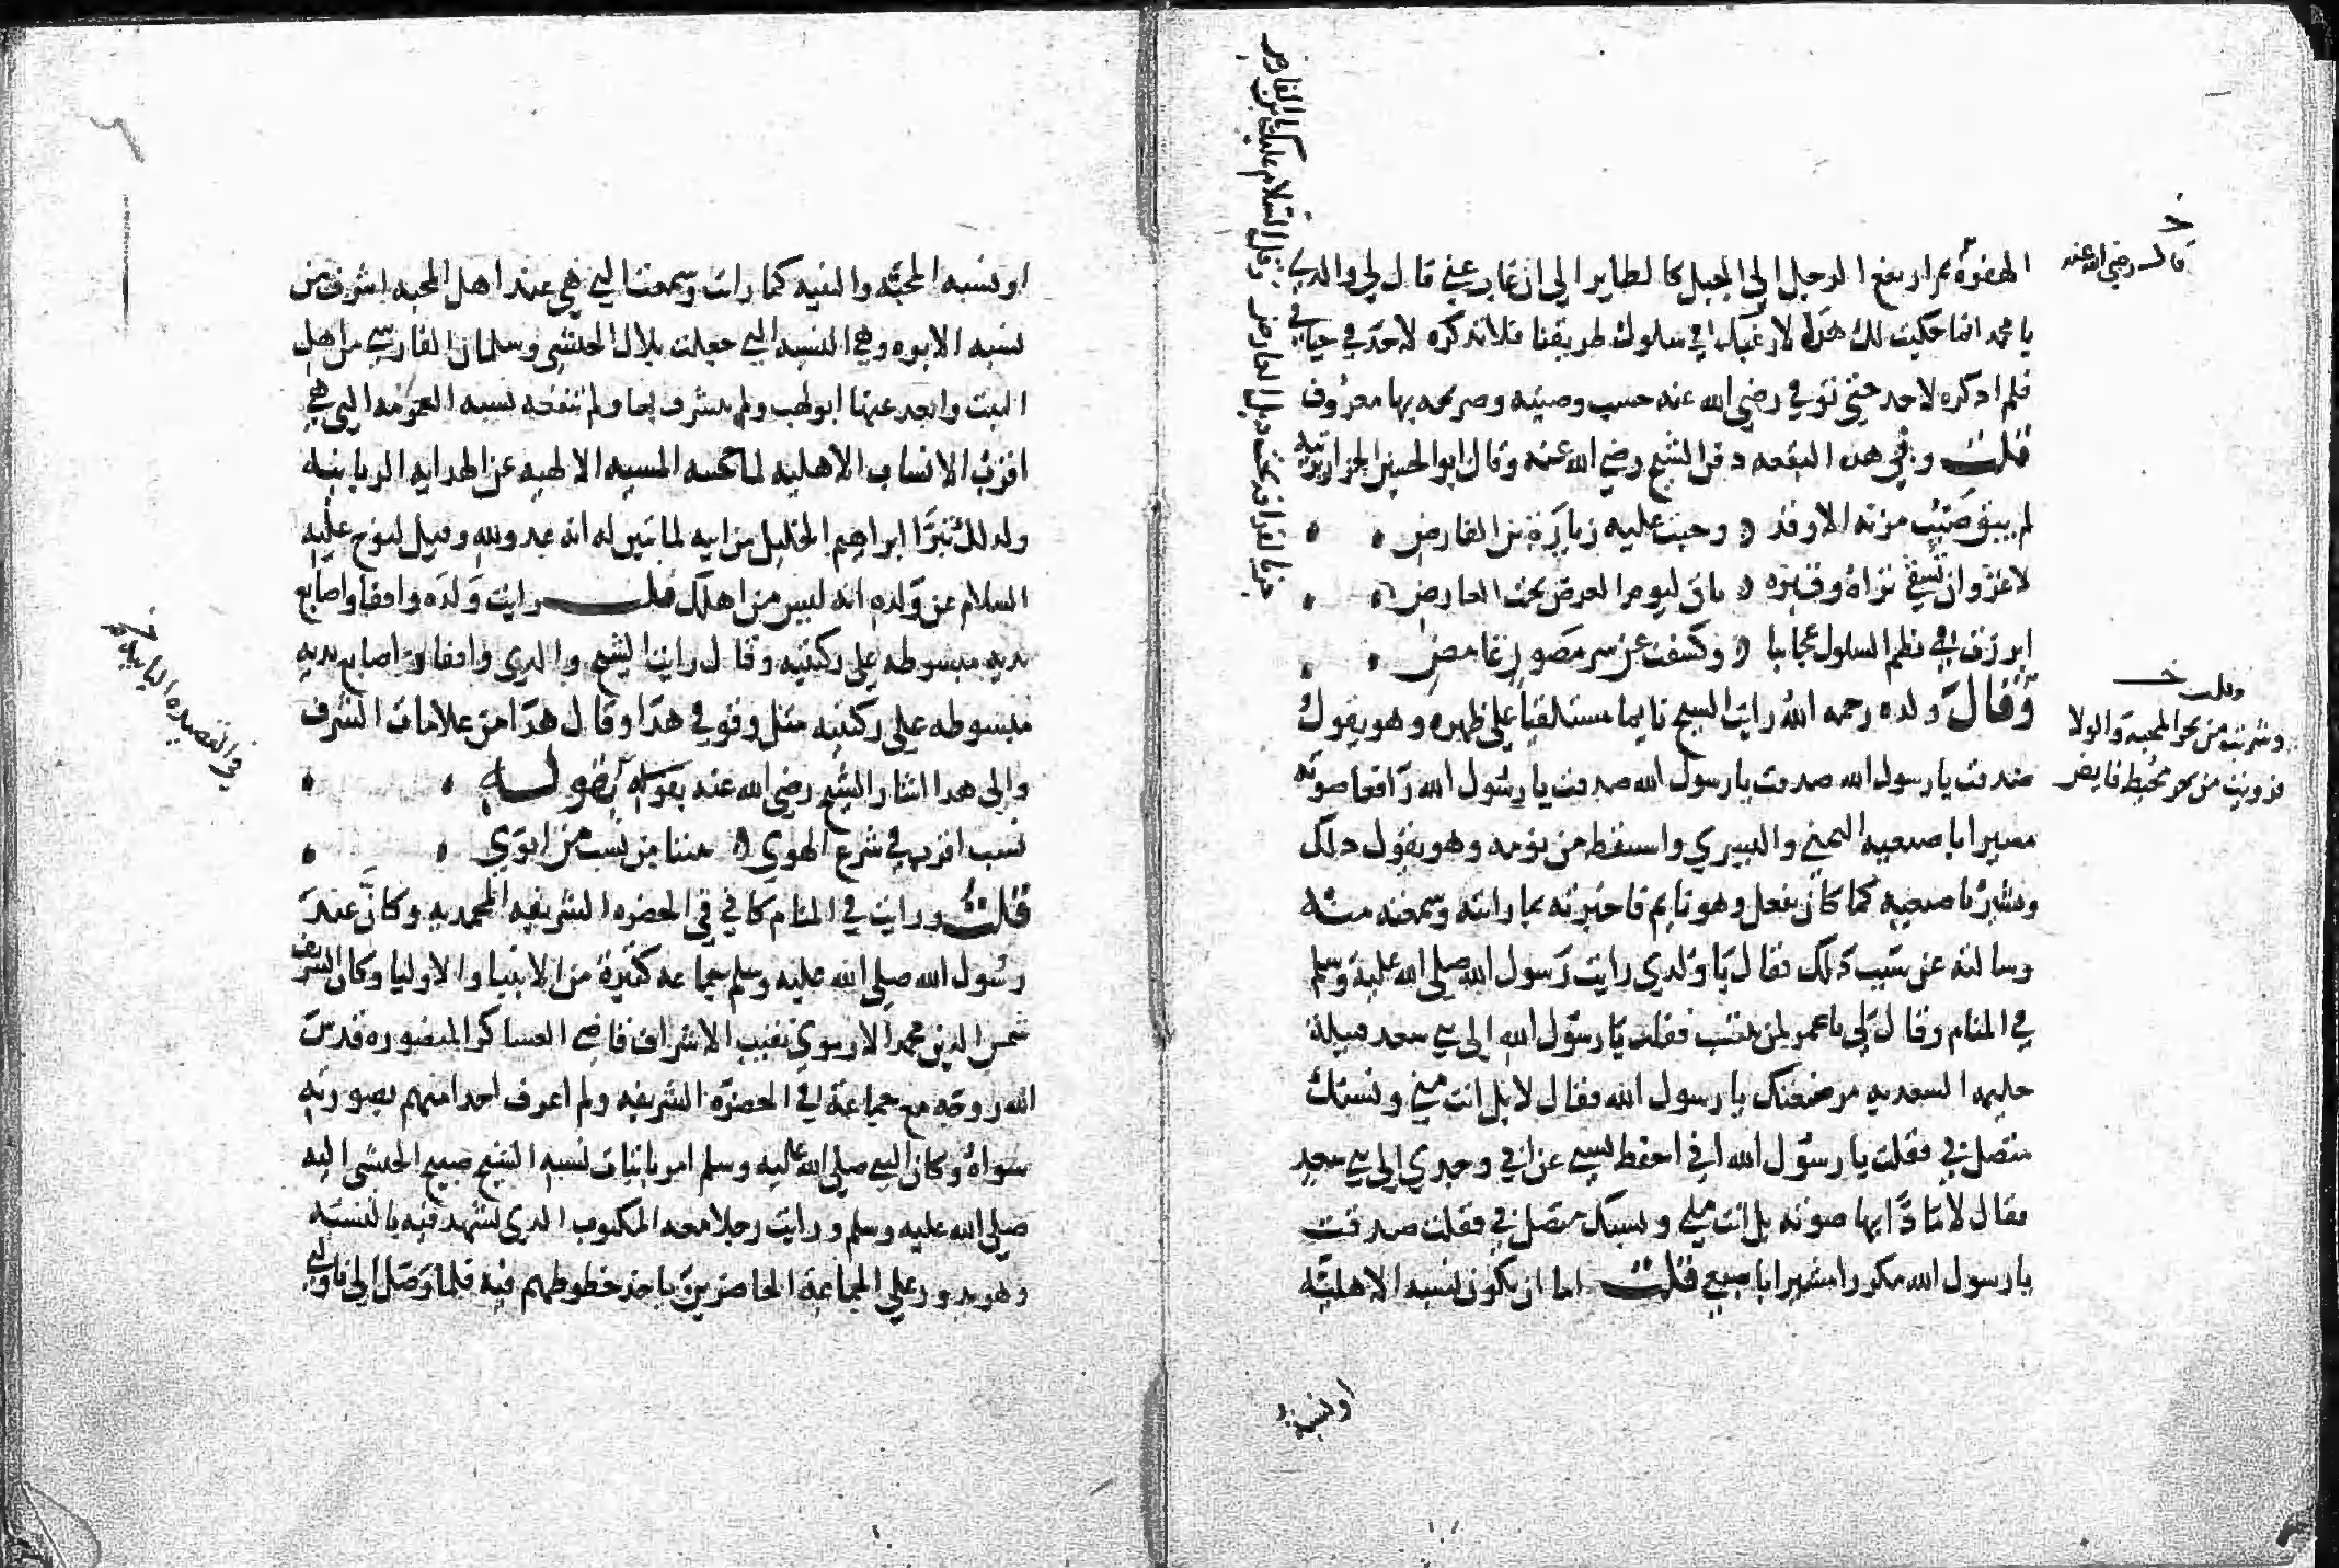 قال رضي الله عنه
الهفوة ثم ارتفع الرجل الي الجبل كالطاير الي ان غاب عني قال لي والدي
يا محمد انما حكيت لك هذا لارغبك في سلوك طريقنا فلا تذكره لاحد في حياتي
فلم اذكره لاحد حتي توفي رضي الله عنه حسب وصيته وضريحه بها معروف
قلت وفي هذه البقعه دفن الشيخ رضي الله عنه وقال ابو الحسين الجزار يرثيه
لم يبق صيب مزنه الا وقد وجبت عليه زيارة بن الفارض
لا غرو ان تسقي ثراه وقبره باق ليوم العرض تحت العارض
جز بالقرافه تحت ذيل العارض وقل السلام عليك يا بن الفارض
ابرزت في نظم السلوك عجايبا وكشفت عن سر مصون غامض
وقلت
وشربت من بحر المحبه والولا
فرويت من بحر محيط فايض
وقال ولده رحمه الله رايت الشيخ نايما مستلقيا علي ظهره وهو يقول
صدقت يا رسول الله صدقت يا رسول الله صدقت يا رسول الله رافعا صوته
مشيرا باصبعيه اليمني واليسري واستيقظ من نومه وهو يقول ذلك
ويشير باصبعيه كما كان يفعل وهو نايم فاخبرته بما رايته وسمعته منه
وسالته عن سبب ذلك فقال يا ولدي رايت رسول الله صلي الله عليه وسلم
في المنام وقال لي يا عمر لمن تنتسب فقلت يا رسول الله الي بني سعد قبيلة
حليمه السعديه مرضعتك يا رسول الله فقال لا بل انت مني ونسبك
متصل بي فقلت يا رسول الله اني احفظ نسبي عن ابي وجدي الي بني سعد
فقال لا مادا بها صوته بل انت مني ونسبك متصل بي فقلت صدقت
يا رسول الله مكررا مشيرا باصبعي قلت اما ان يكون نسبة الاهليه
او نسبة
او نسبه المحبه والنيه كما رايت وسمعت التي هي عند اهل المحبه اشرف من
نسبه الابوه وهي النسبه التي جعلت بلال الحبشي وسلمان الفارسي من اهل
البيت وابعد عنها ابو لهب ولم يشرف بها ولم تنفعه نسبه العمومه التي هي
اقرب الانساب الاهليه لما حجبته المشيه الالهيه عن الهدايه الربانيه
ولذلك تبرا ابراهيم الخليل من ابيه لما تبين له انه عدو لله وقيل لنوح عليه
السلام عن ولده انه ليس من اهلك قلت رايت ولده واقفا واصابع
يديه مبسوطه علي ركبتيه وقال رايت الشيخ والدي واقفا واصابع يديه
مبسوطه علي ركبتيه مثل وقوفي هذا وقال هذا من علامات الشرف
والي هذا اشار الشيخ رضي الله عنه بقوله
في القصيده اليايه
نسب اقرب في شرع الهوي بيننا من نسب من ابوي
قلت ورايت في المنام كاني في الحضره الشريفه المحمديه وكان عند
رسول الله صلي الله عليه وسلم جماعه كثيرة من الانبيا والاوليا وكان الشريف
شمس الدين محمد الارموي نقيب الاشراف قاضي العساكر المنصوره قدس
الله روحه مع جماعة في الحضرة الشريفه ولم اعرف احدا منهم بصورته
سواه وكان النبي صلي الله عليه وسلم امر باثبات نسبه الشيخ صبيح الحبشي اليه
صلي الله عليه وسلم ورايت رجلا معه المكتوب الذي نشهد فيه بالنسبه
وهو يدور علي الجماعة الحاضرين ياخذ خطوطهم فيه فلما وصل الي ناولني